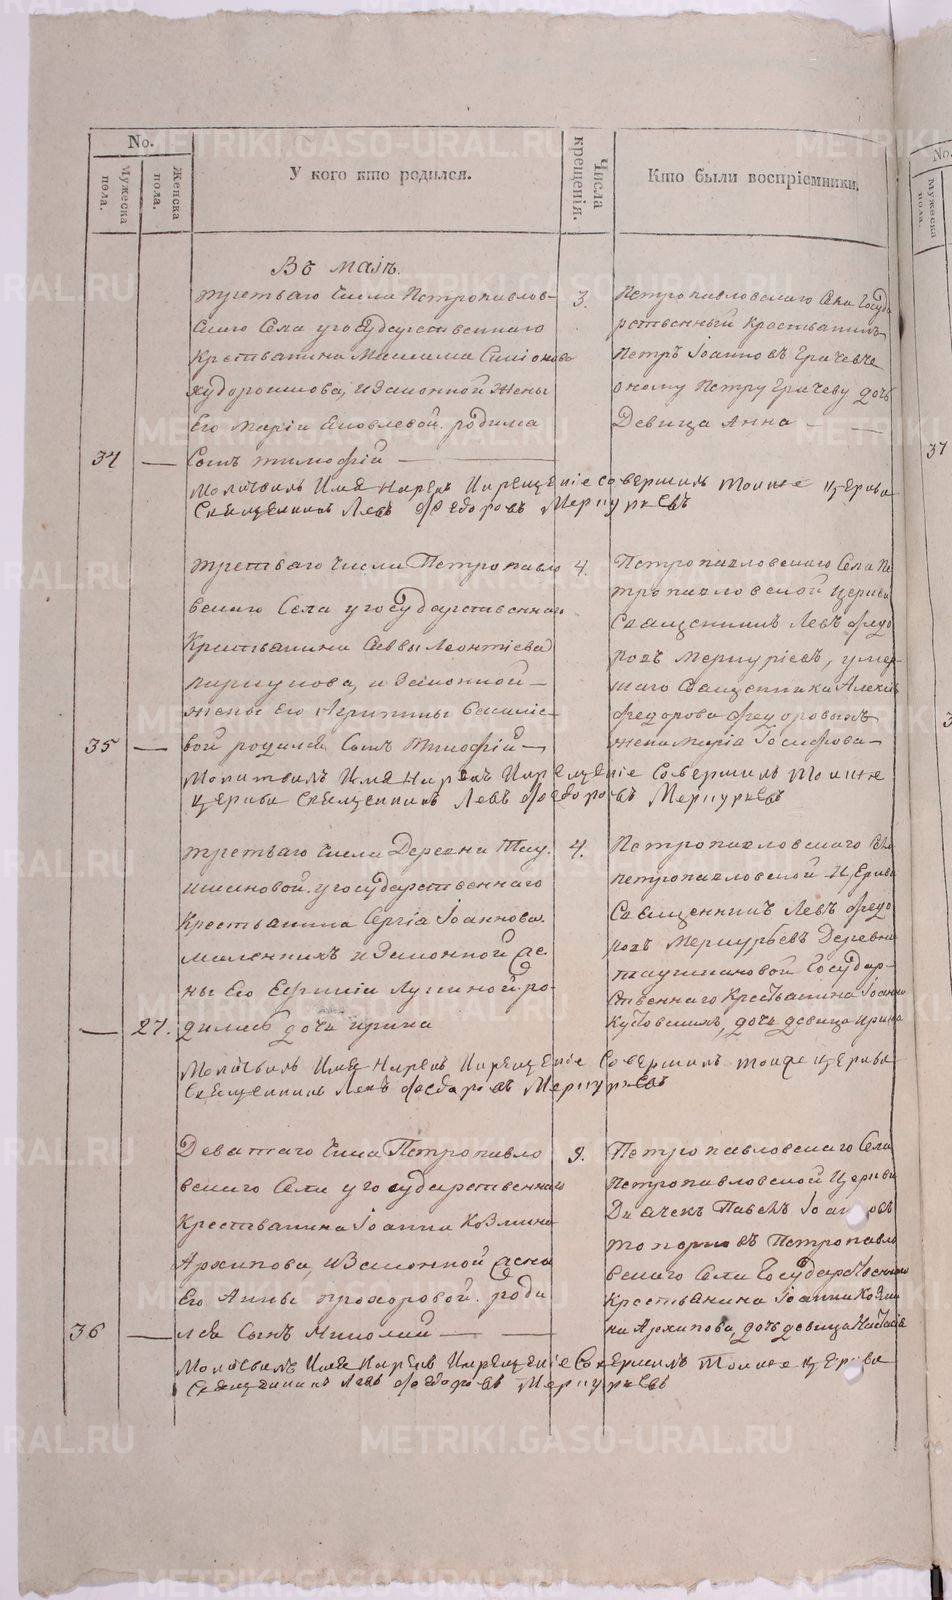 No.
Мужеска пола.
Женска пола.
У кого кто родился.
Числа крещенія.
Кто были воспріемники.
Въ маiѣ.
третьяго числа Петропавлов-
скаго Села у государственнаго
Крестьянина Максима Симіонова
Худорошкова, и Законной жены
Его Маріи Яковлевой родился
34
Сынъ тимофій
3.
Петропавловскаго Села Госуда
рственный крестьянинъ
Петръ Іоанновъ Грачевъ
Петру Грачеву дочь
Девица Анна
Молитвилъ Имя Нарекъ И крещеніе совершилъ тоиже церкви
Священникъ Левъ Федоровъ Меркурьевъ
третьяго числа Петропавло
вскаго Села у государственнаго
Крестьянина Саввы Леонтіева
и Законной
жены Его Агрипины Василіе-
35
вой родился Сынъ Тимофій
4.
Петропавловскаго Села Пе
тропавловской церкви
Священникъ Левъ Федо
ровъ Меркуріевъ, умер-
шаго Священника Алексія
Федорова Федоровыхъ
жена Марія Іосифова
Молитвилъ Имя Нарекъ И крещеніе Совершилъ тоиже
церкви Священникъ Левъ Федоровъ Меркурьевъ
третьяго числа Деревни Тау
шкановой у государственнаго
Крестьянина Сергія Іоаннова
Маленкихъ и Законной же
ны Его Ефиміи Лукиной ро-
27.
дилась дочь ирина
4.
Петропавловскаго Села
петропавловской церкви
Священникъ Левъ Федо
ровъ Меркурьевъ Деревни
таушкановой Государ-
ственнаго Крестьянина Іоанна
дочь девица ирина
Молитвилъ Имя Нарекъ И крещеніе Совершилъ тоиже церкви
Священникъ Левъ Федоровъ Меркурьевъ
Девятаго числа Петропавло
вскаго Села у государственнаго
Крестьянина Іоанна Козмина
Архипова, и Законной жены
Его Анны прохоровой роди
36
лся Сынъ Николай
9.
Петропавловскаго Села
Петропавловской Церкви
Дьячекъ Павелъ Іоанновъ
топорковъ Петропавло
вскаго Села Государственнаго
Крестьянина Іоанна Козми
на Архипова, дочь девица Настасія
Молитвилъ Имя Нарекъ И крещеніе Совершилъ Тоиже церкви
Священникъ Левъ Федоровъ Меркурьевъ
No.
Мужеска пола.
37
METRIKI.GASO-URAL.RU